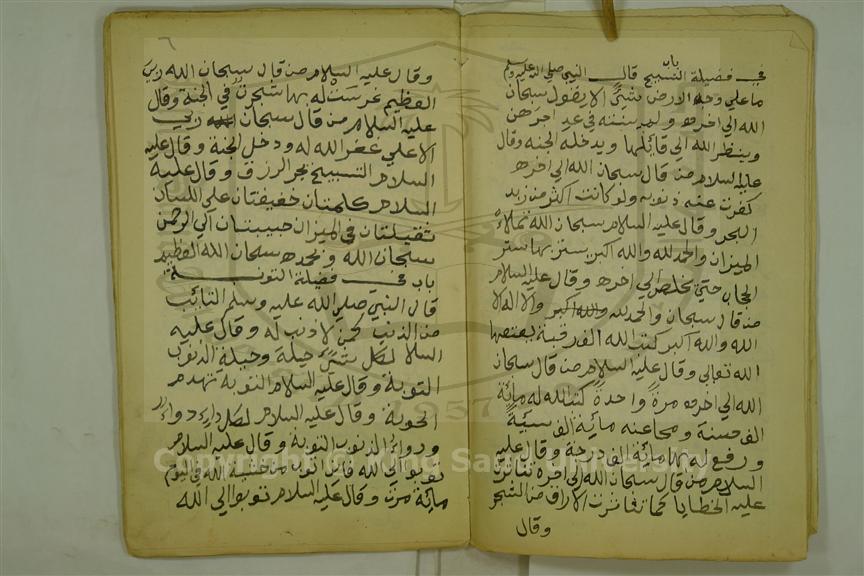 باب
في فضيلة التسبيح قال النبي صلي الله عليه وسلم
ما علي وجه الارض شئ الا يقول سبحان
الله الي اخره
وينظر الله الي قائلها ويدخله الجنه وقال
عليه السلام من قال سبحان الله الي اخره
كفرت عنه ذنوبه ولو كانت اكثر من زبد
البحر وقال عليه السلام سبحان الله تملاء
الميزان والحمد لله والله اكبر
حتي تخلص الي اخره وقال عليه السلام
من قال سبحان والحمد لله والله اكبر ولا اله الا
الله والله اكبر كتب الله
الله تعالي وقال عليه السلام من قال سبحان
الله الي اخره مرة واحدة كتب الله له مائة
الف حسنة ومحا عنه مائة الف سيئة
ورفع له بها مائة الف درجة وقال عليه
السلام من قال سبحان الله الي اخره تناثرت
عليه الخطايا كما من الشجر
وقال
٦
وقال عليه السلام من قال سبحان الله ربي
العظيم غرست له بها شجرت في الجنة وقال
عليه السلام من قال سبحان ربي
الاعلي غفر الله له ودخل الجنة وقال عليه
السلام التسبيح يجر الرزق وقال عليه
السلام كلمتان خفيفتان علي اللسان
ثقيلتان في الميزان حبيبتان الي الرحمن
سبحان الله وبحمده سبحان الله العظيم
باب في فضيلة التوبة
قال النبي صلي الله عليه وسلم التائب
من الذنب كمن لا ذنب له وقال عليه
السلا لكل شئ حيلة وحيلة الذنوب
التوبة وقال عليه السلام التوبة تهدم
الحوبة وقال عليه السلام لكل داء دواء
ودواء الذنوب التوبة وقال عليه السلام
توبوا الي الله فاني اتوب من خشية الله في اليوم
مائة مرت وقال عليه السلام توبوا الي الله
Copyright © King Saud University
1957